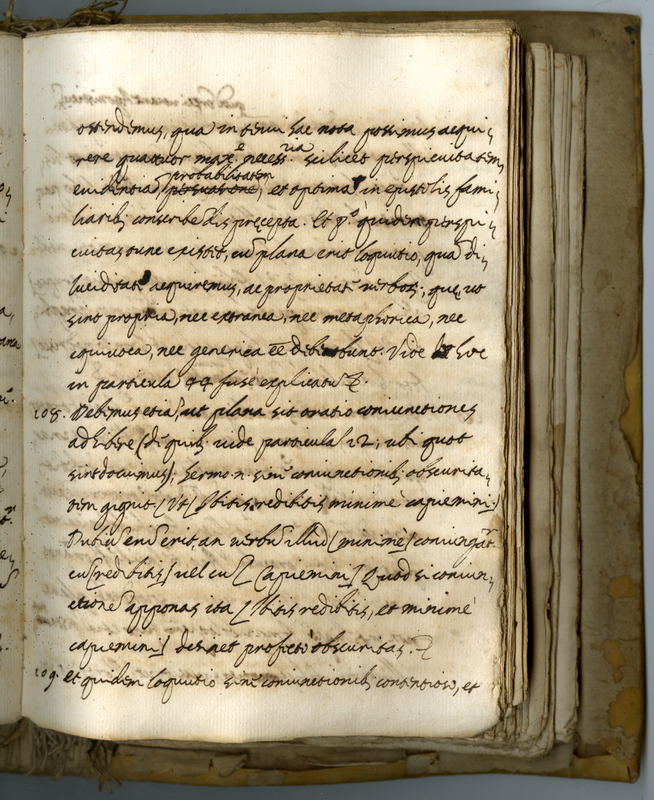 ostendemus, qua in tenui hac nota possimus acqui,
rere quattuor maxe necessria. scilicet perspicuitatem,
euidentiā, probabilitatem persuasione, et optima in epistolis fami,
liarib; conscribēdis pręcepta. Et po. quidem perspi,
cuitas tunc existit, cū plana erit loquutio, quā di,
luciditatē acquiremus, ac proprietatē verbor, quę, ut
sint propria, nec extranea, nec metaphorica, nec
equiuoca, nec generica eē debebunt. Vide hoc
in particula 44 fuse explicatū.
108. Debimus etiā, ut plana sit oratio coniunctiones
adhibere (de quib; uide particula 12; ubi quot
sint docuimus); sermo .n. sine coniunctionib; obscurita,
tem gignit [Vt] Ibitis redibitis minimè capiemini.]
Dubiū eni erit, an verbū illud [minimè] coniungat
cū [redibitis] uel cū [Capiemini] Quod si coniun,
ctionē apponas ita [Ibitis redibitis, et minimè
capiemini] desinet profectò obscuritas.
109. et quidem loquutio sine coniunctionib; contentiosę, et